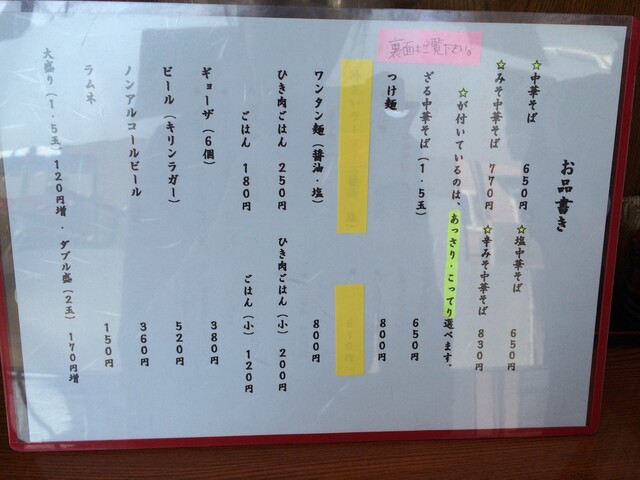 裏面もご覧ください。
お品書き
☆中華そば 650円 ☆塩中華そば 650円
☆みそ中華そば 770円 ☆辛みそ中華そば 830円
☆が付いているのは、あっさり・こってり選べます。
ざる中華そば(1.5玉) 650円
つけ麺 800円
ワンタン麺(醤油・塩) 800円
ひき肉ごはん 250円 ひき肉ごはん(小) 200円
ごはん 180円 ごはん(小) 120円
ギョーザ(6個) 380円
ビール(キリンラガー) 520円
ノンアルコールビール 360円
ラムネ 150円
大盛り(1.5玉) 120円増・ダブル盛(2玉) 170円増